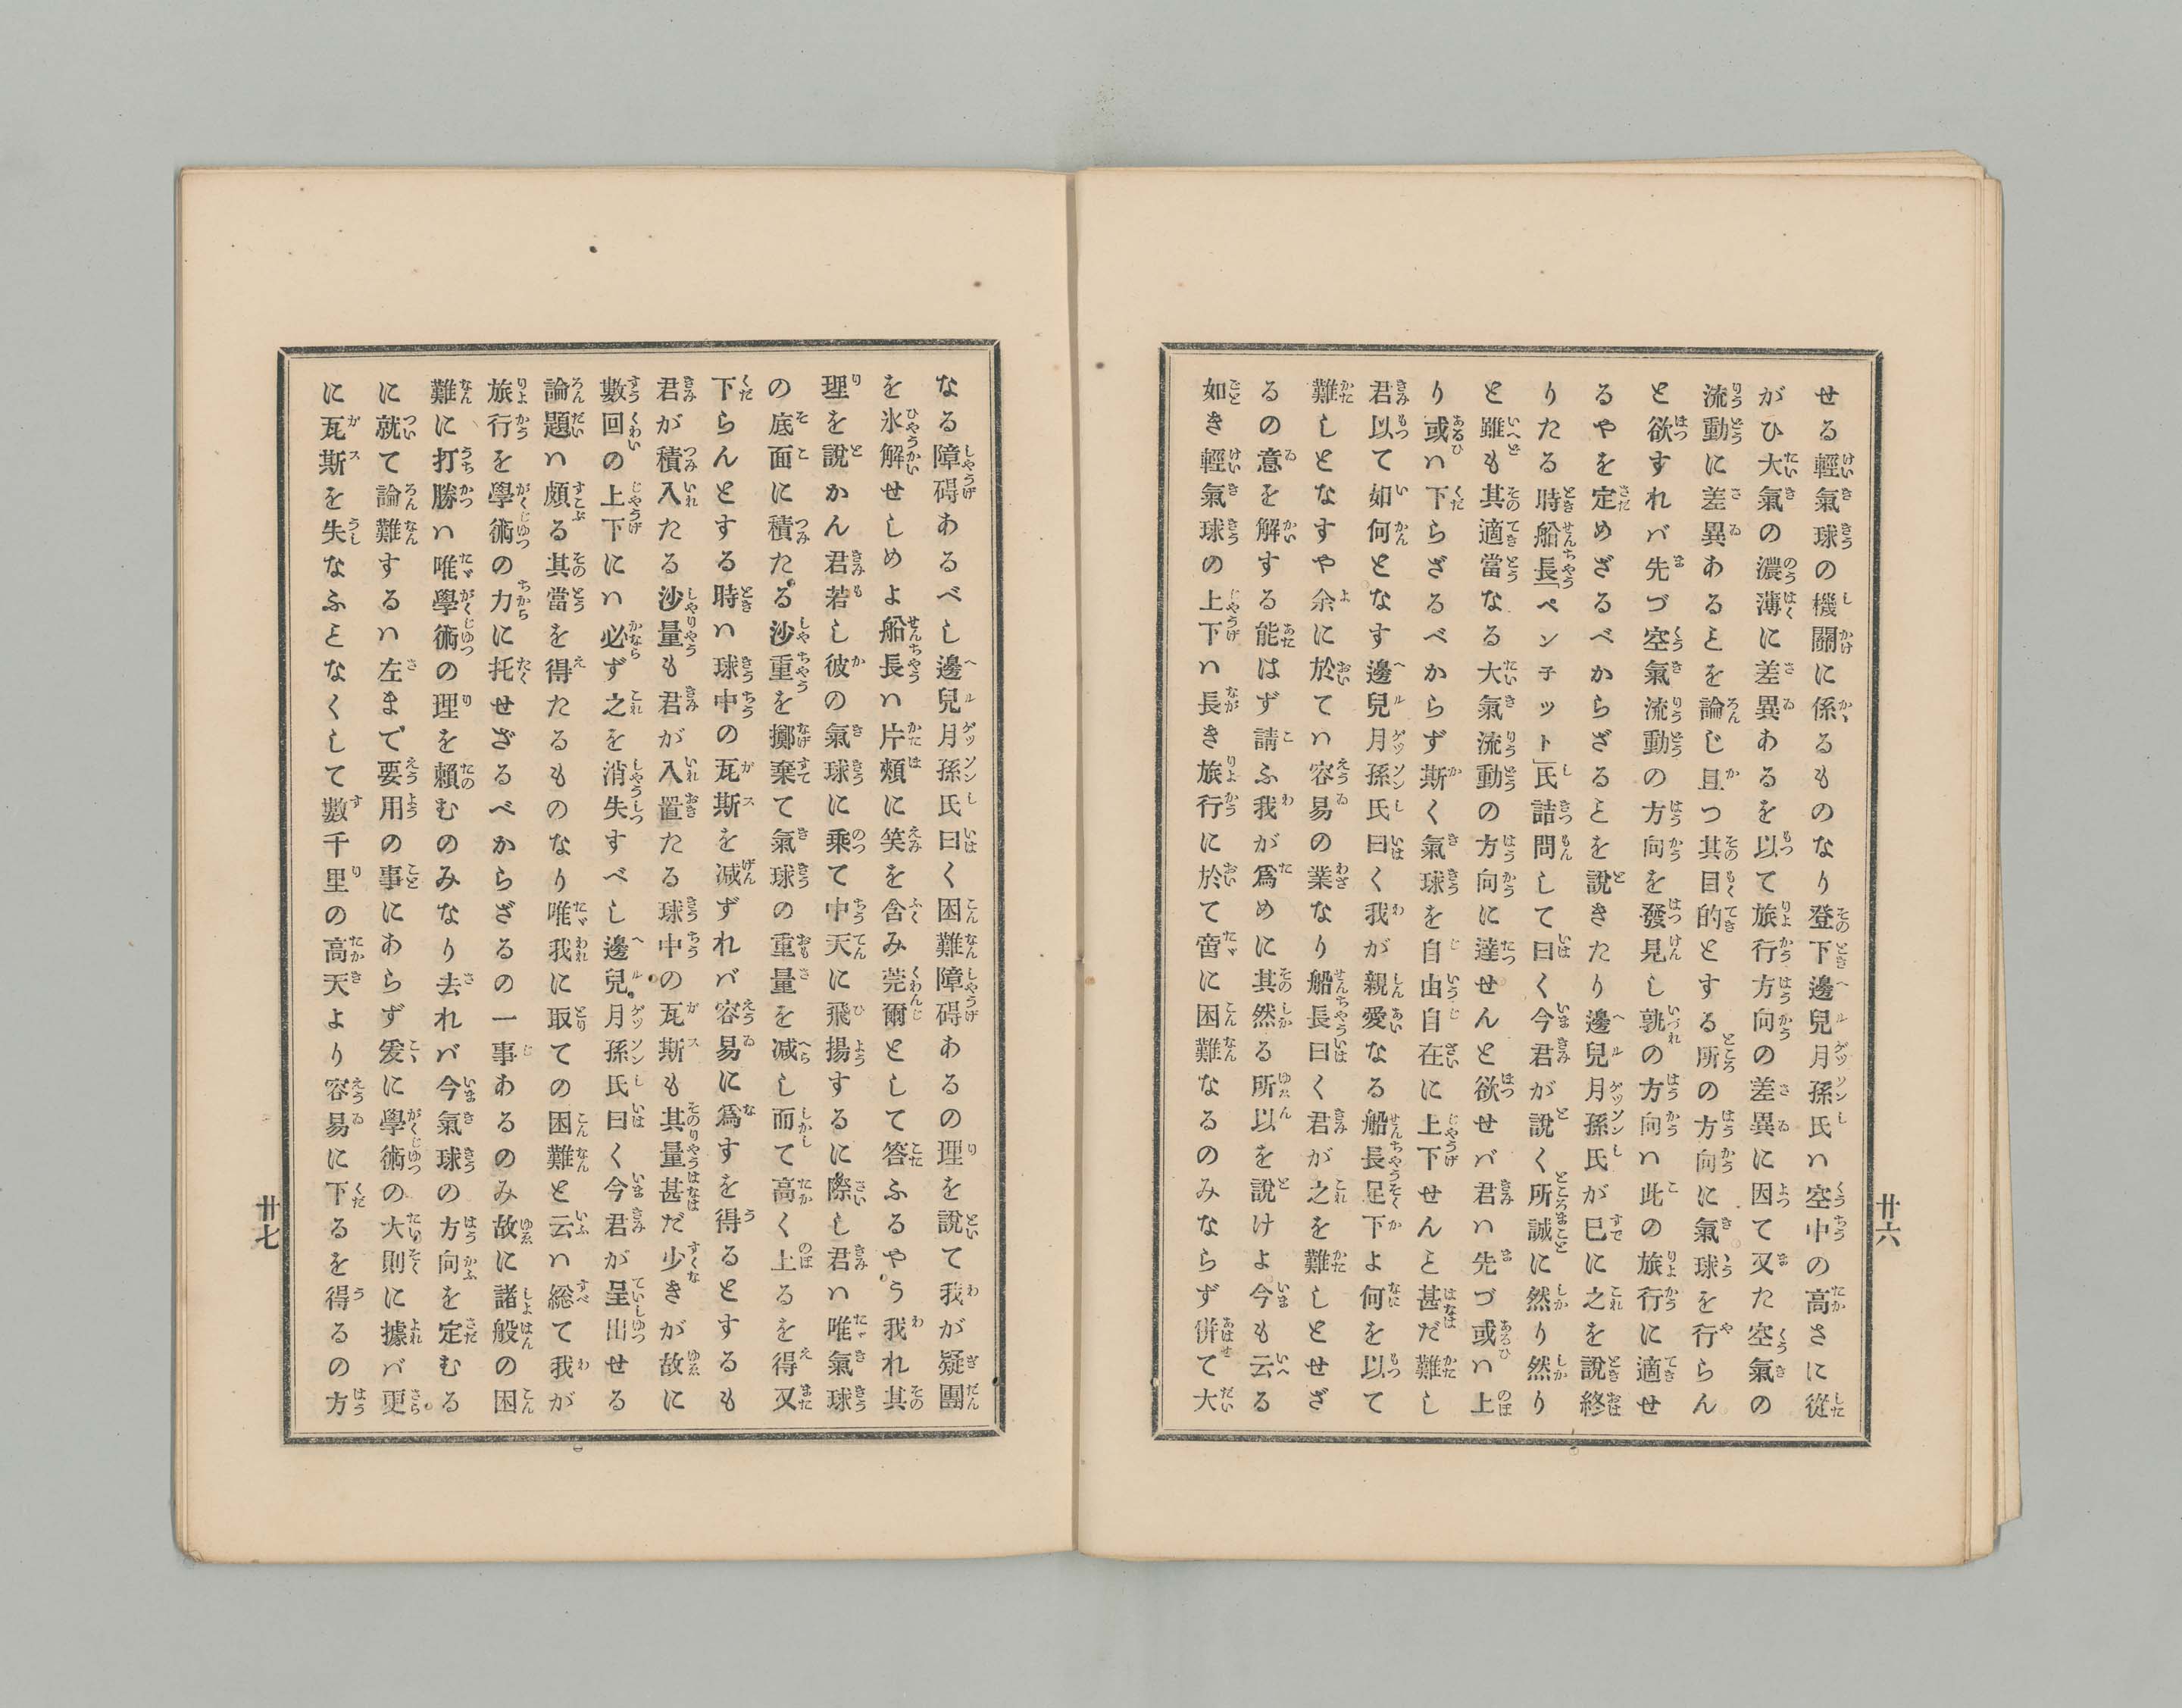 せる輕氣球の機關に係るものなり登下邊兒月孫氏ハ空中の高さに從
がひ大氣の濃薄に差異あるを以て旅行方向の差異に因て又た空氣の
流動に差異あるヿを論じ且つ其目的とする所の方向に氣球を行らん
と欲すれバ先づ空氣流動の方向を發見し孰の方向ハ此の旅行に適せ
るやを定めざるべからざるヿを說きたり邊兒月孫氏が已に之を說終
りたる時船長「ペン子ツト」氏詰問して曰く今君が說く所誠に然り然り
と雖も其適當なる大氣流動の方向に達せんと欲せバ君ハ先づ或ハ上
り或ハ下らざるべからず斯く氣球を自由自在に上下せんヿ甚だ難し
君以て如何となす邊兒月孫氏曰く我が親愛なる船長足下よ何を以て
難しとなすや余に於てハ容易の業なり船長曰く君が之を難しとせざ
るの意を解する能はず請ふ我が爲めに其然る所以を說けよ今も云る
如き輕氣球の上下ハ長き旅行に於て啻に困難なるのみならず併て大
卅六
なる障碍あるべし邊兒月孫氏曰く困難障碍あるの理を說て我が疑團
を氷解せしめよ船長ハ片頰に笑を含み莞爾として答ふるやう我れ其
理を說かん君若し彼の氣球に乘て中天に飛揚するに際し君ハ唯氣球
の底面に積たる沙重を擲棄て氣球の重量を减し而して高く上るを得又
下らんとする時ハ球中の瓦斯を减ずれバ容易に爲すを得るとするも
君が積入たる沙量も君が入置たる球中の瓦斯も其量甚だ少きが故に
數回の上下にハ必ず之を消失すべし邊兒月孫氏曰く今君が呈出せる
論題ハ頗る其當を得たるものなり唯我に取ての困難と云ハ総て我が
旅行を學術の力に托せざるべからざるの一事あるのみ故に諸般の困
難に打勝ハ唯學術の理を賴むのみなり去れバ今氣球の方向を定むる
に就て論難するハ左まで要用の事にあらず爰に學術の大則に據バ更
に瓦斯を失なふヿなくして數千里の高天より容易に下るを得るの方
卅七